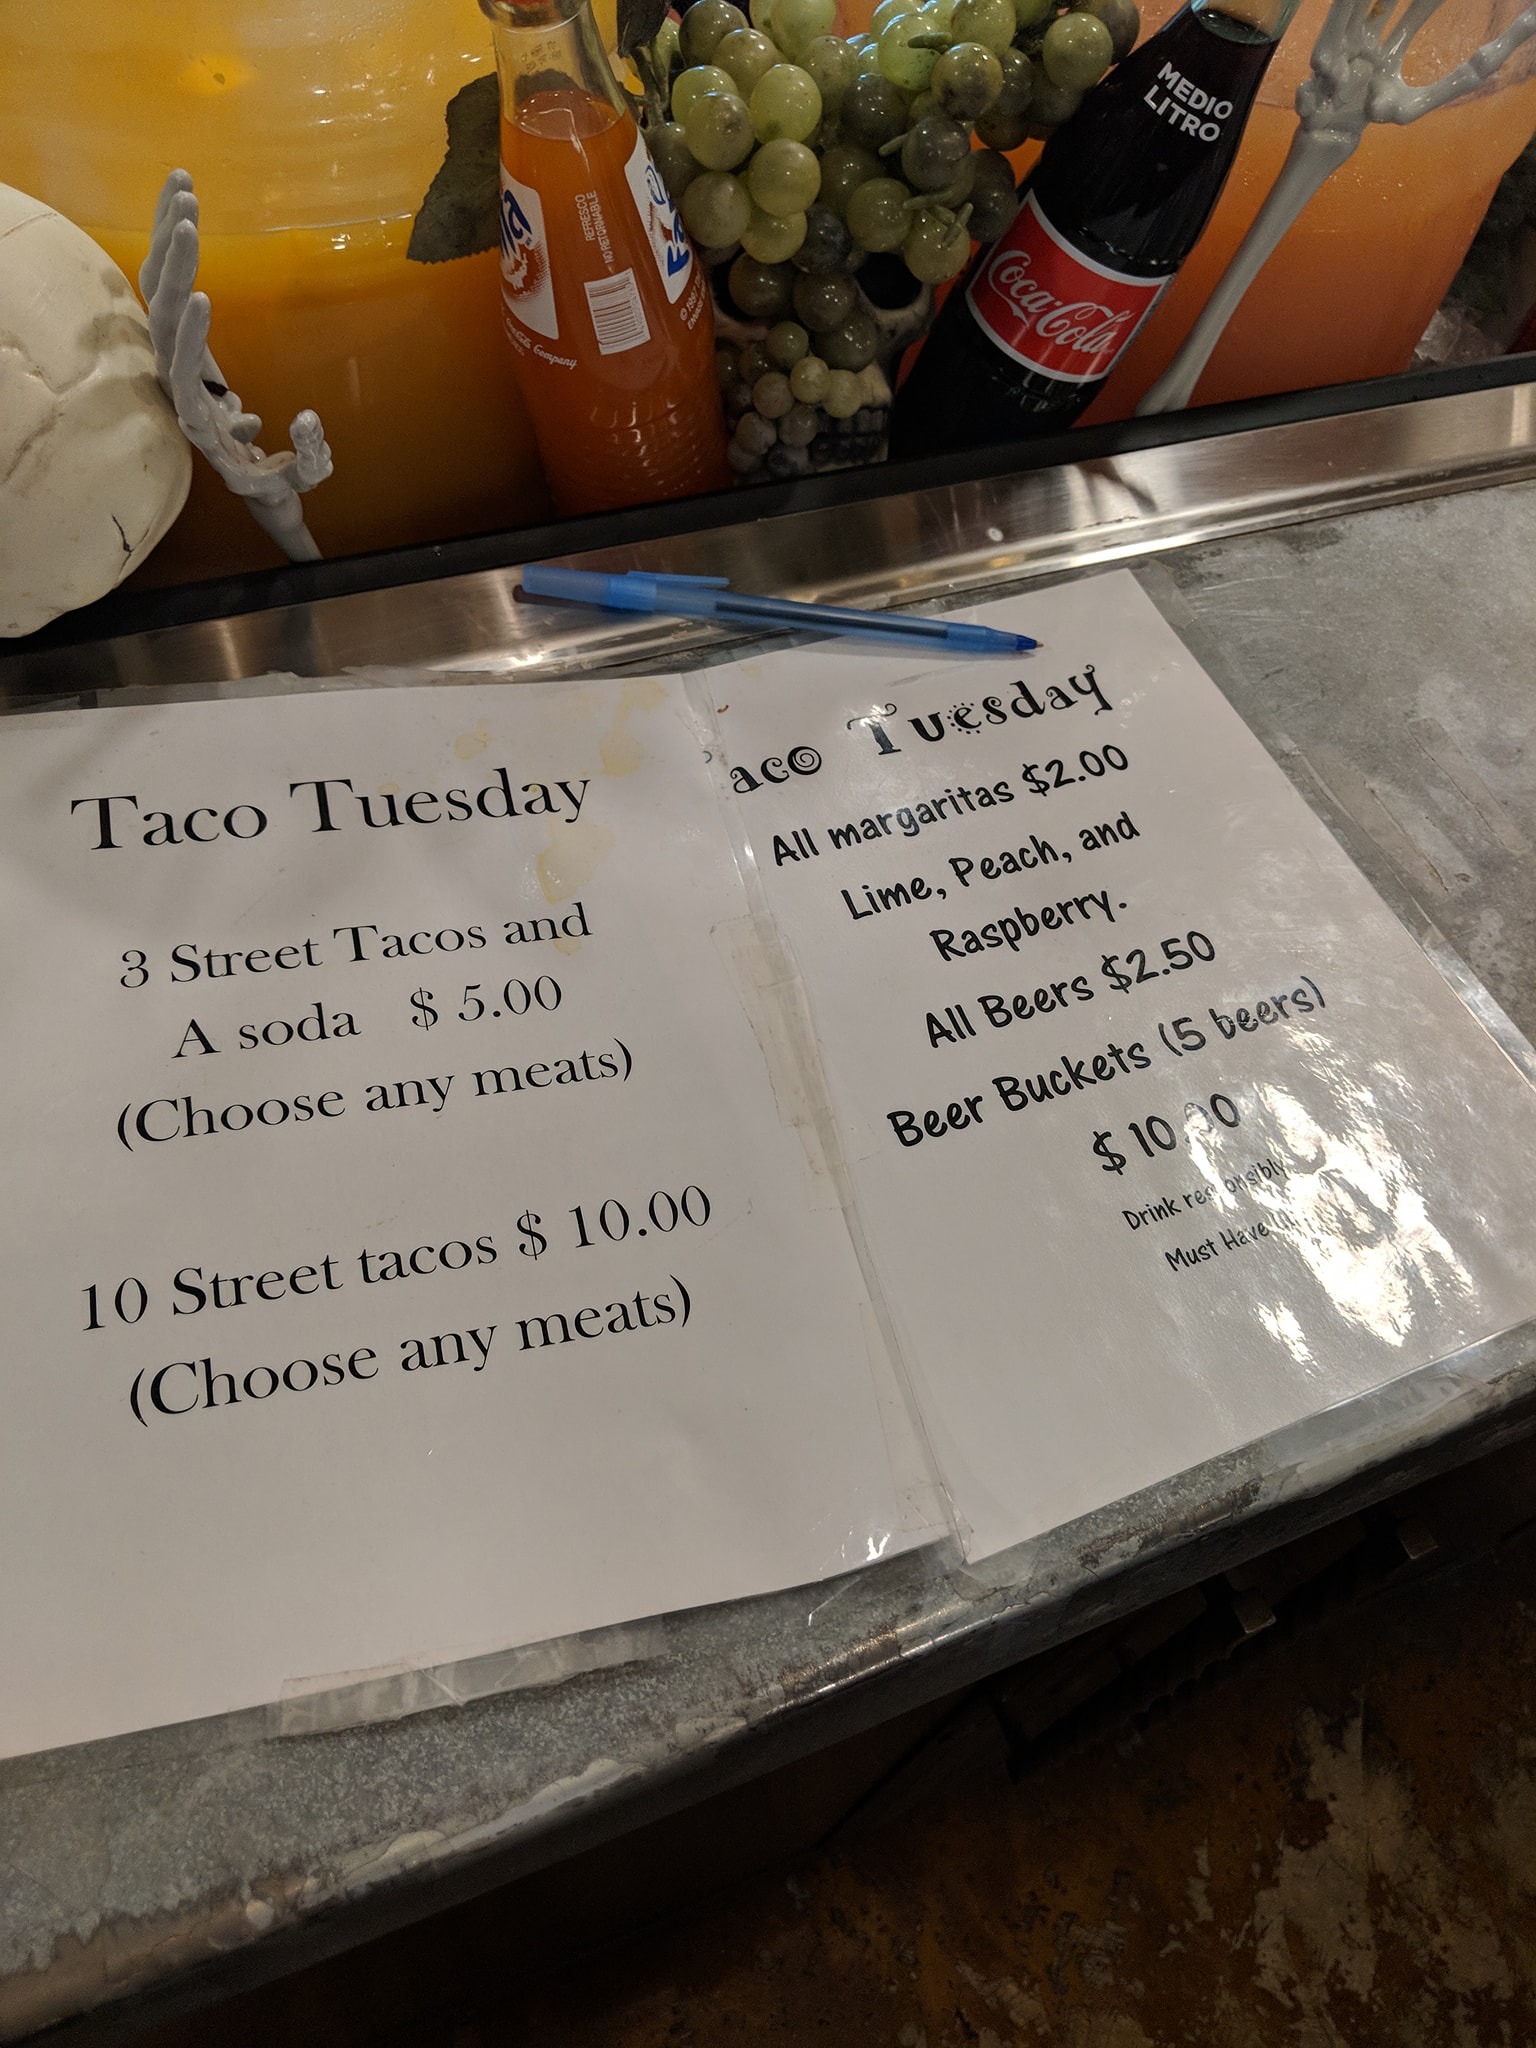 MEDIO
LITRO
Coca-Cola
REFRESCO
NO RETORNABLE
Taco Tuesday
3 Street Tacos and
A soda $ 5.00
(Choose any meats)
10 Street tacos $ 10.00
(Choose any meats)
aco Tuesday
All margaritas $2.00
Lime, Peach, and
Raspberry.
All Beers $2.50
Beer Buckets (5 beers)
$ 10.00
Drink responsibly
Must Have